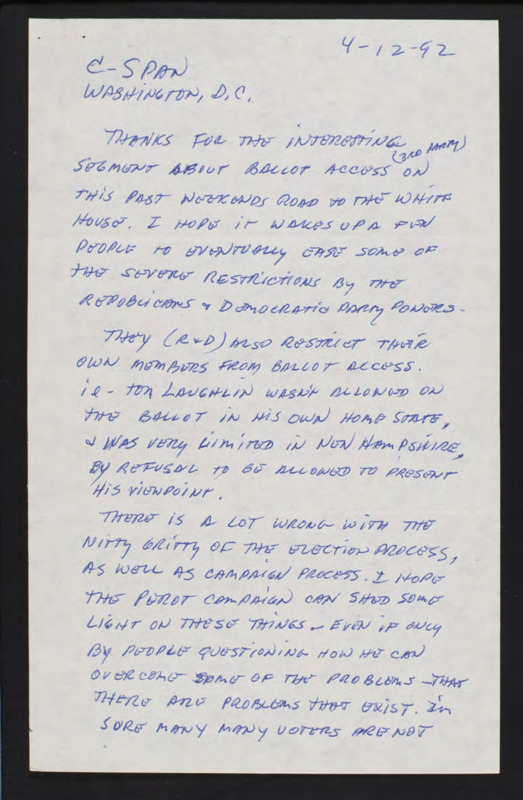 4-12-92
C-SPAN
WASHINGTON, D.C.
THANKS FOR THE INTERESTING
(3RD PARTY)
SEGMENT ABOUT BALLOT ACCESS ON
THIS PAST WEEKENDS ROAD TO THE WHITE
HOUSE. I HOPE IT WAKES UP A FEW
PEOPLE TO EVENTUALLY EASE SOME OF
THE SEVERE RESTRICTIONS BY THE
REPUBLICANS & DEMOCRATIC PARTY POWERS.
THEY (R&D) ALSO RESTRICT THEIR
OWN MEMBERS FROM BALLOT ACCESS.
ie - TOM LAUGHLIN WASN'T ALLOWED ON
THE BALLOT IN HIS OWN HOME STATE,
& WAS VERY LIMITED IN NEW HAMPSHIRE,
BY REFUSAL TO BE ALLOWED TO PRESENT
HIS VIEWPOINT.
THERE IS A LOT WRONG WITH THE
NITTY GRITTY OF THE ELECTION PROCESS,
AS WELL AS CAMPAIGN PROCESS. I HOPE
THE PEROT CAMPAIGN CAN SHED SOME
LIGHT ON THESE THINGS - EVEN IF ONLY
BY PEOPLE QUESTIONING HOW HE CAN
OVERCOME SOME OF THE PROBLEMS - THAT
THERE ARE PROBLEMS THAT EXIST. I'm
SURE MANY MANY VOTERS ARE NOT